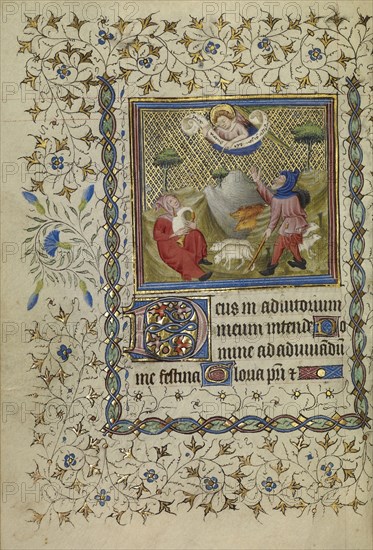 Deus in adiutorium
meum intende Do
mine ad adiuuandū
me festina Gloria pr̄i ⁊